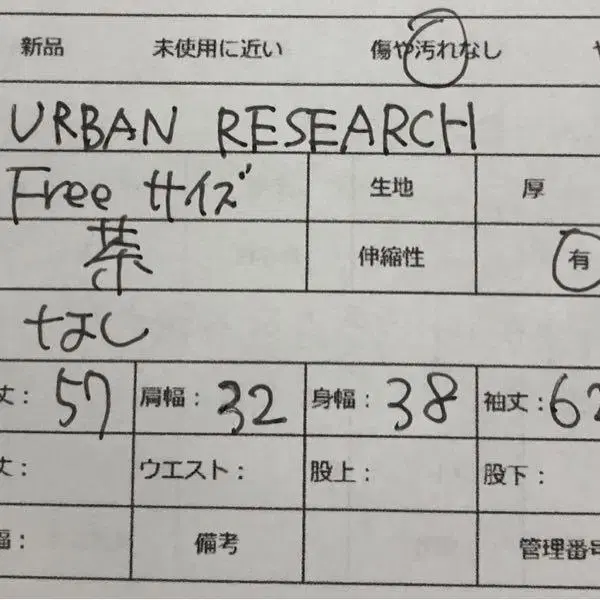 新品 未使用に近い 傷や汚れなし
URBAN RESEARCH
Free サイズ 生地 厚
茶 伸縮性 有
なし
丈: 57 肩幅: 32 身幅: 38 袖丈: 62
丈: ウエスト: 股上: 股下:
幅: 備考 管理番号